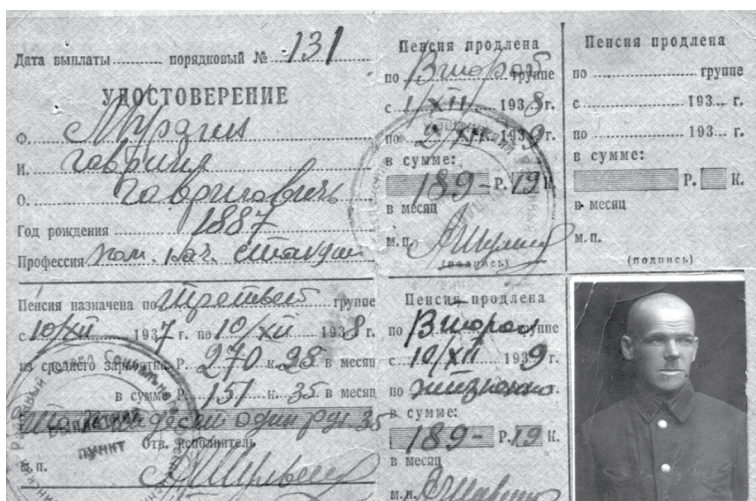 Дата выплаты порядковый № 131
УДОСТОВЕРЕНИЕ
Ф. Мурагин
И. Гавриил
О. Гаврилович
Год рождения 1887
Профессия пом. нач. станции
Пенсия назначена по третьей группе
с 10/XII 1937 г. по 10/XII 1938 г.
из среднего заработка Р. 270 к. 28 в месяц
в сумме Р. 151 к. 35 в месяц
один руб. 35
Отв. исполнитель
м. п.
ПУНКТ
Пенсия продлена
по Второй группе
с 1/XII 1938 г.
по 2/XII 1939 г.
в сумме:
189 - Р. 19 К.
в месяц
м. п.
(подпись)
Пенсия продлена
по группе
с 193 г.
по 193 г.
в сумме:
Р. К.
в месяц
м. п.
(подпись)
Пенсия продлена
по Второй группе
с 10/XII 1939
по жизненно
в сумме:
189 - Р. 19 К.
в месяц
м. п.